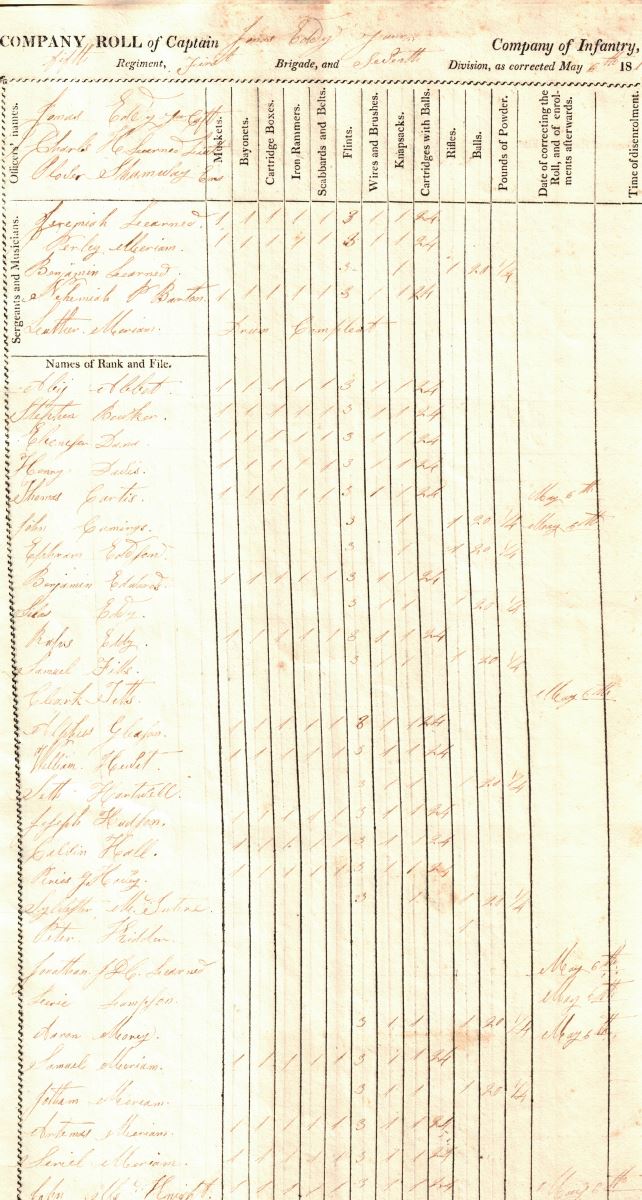 COMPANY ROLL of Captain Jonas Eddy Company of Infantry,
fifth Regiment, First Brigade, and Seventh Division, as corrected May 6th 181
Officers' names.
Jonas Eddy Jr Capt
Charles H Learned Lieut
Shumway Ens
Muskets.
Bayonets.
Cartridge Boxes.
Iron Rammers.
Scabbards and Belts.
Flints.
Wires and Brushes.
Knapsacks.
Cartridges with Balls.
Rifles.
Balls.
Pounds of Powder.
Date of correcting the Roll, and of enrolments afterwards.
Time of disenrolment.
Sergeants and Musicians.
Jeremiah Learned. 1 1 1 1 1 3 1 1 24
Perley Meriam. 1 1 1 1 1 3 1 1 24
Benjamin Learned. 3 1 1 20 1/4
Nehemiah P Barton. 1 1 1 1 1 3 1 1 24
Luther Meriam. Drum Compleat
Names of Rank and File.
Abbot 1 1 1 1 1 3 1 1 24
Stephen Booker. 1 1 1 1 1 3 1 1 24
Ebenezer Davis 1 1 1 1 1 3 1 1 24
Henry Davis. 1 1 1 1 1 3 1 1 24
Thomas Curtis. 1 1 1 1 1 3 1 1 24 May 6th
John Cumings. 3 1 1 20 1/4 May 6th
Ephraim 3 1 1 20 1/4
Benjamin Edwards 1 1 1 1 1 3 1 1 24
Eddy 3 1 1 1 20 1/4
Rufus Eddy 1 1 1 1 1 3 1 1 24
Samuel 3 1 1 1 20 1/4
Clark May 6th
Alpheus Gleason. 1 1 1 1 1 3 1 1 24
William 1 1 1 1 1 3 1 1 24
Seth Hartwell. 3 1 1 1 20 1/4
Joseph Hudson. 1 1 1 1 1 3 1 1 24
Hall. 1 1 1 1 1 3 1 1 24
1 1 1 1 1 3 1 1 24
Sylvester McIntire. 3 1 1 20 1/4
Peter Kidder. 1
Jonathan Learned May 6th
Lewis Lampson. May 6th
Aaron 3 1 1 1 20 1/4 May 6th
Samuel Meriam. 1 1 1 1 1 3 1 1 24
Jotham Meriam. 3 1 1 1 20 1/4
Artemas Meriam. 1 1 1 1 1 3 1 1 24
Meriam. 1 1 1 1 1 3 1 1 24
John McKnight. 1 1 1 1 1 3 1 1 24